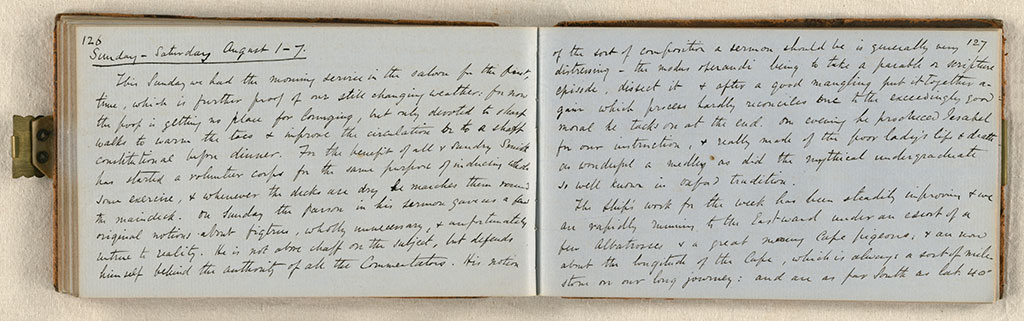 126
Sunday - Saturday August 1 - 7.
This Sunday we had the morning service in the saloon for the first
time, which is further proof of our still changing weather: for now
the poop is getting no place for lounging, but only devoted to sharp
walks to warm the toes & improve the circulation or to a sharp
constitutional before dinner. For the benefit of all & sundry Smith
has started a volunteer corps for the same purpose of inducing
some exercise, & whenever the decks are dry he marches them round
the maindeck. On Sunday the Parson in his sermon gave us a few
original notions about figtrees, wholly unnecessary, & unfortunately
untrue to reality. He is not above chaff on the subject, but defends
himself behind the authority of all the Commentators. His notion
127
of the sort of composition a sermon should be is generally very
distressing - the modus operandi being to take a parable or scripture
episode, dissect it & after a good mangling put it together a-
gain which process hardly reconciles one to the exceedingly good
moral he tacks on at the end. On evening he produced Jezabel
for our instruction, & really made of the poor lady's life & death
as wonderful a medley as did the mythical undergraduate
so well known in Oxford tradition.
The ship's work for the week has been steadily improving & we
are rapidly running to the Eastward under an escort of a
few Albatrosses & a great many Cape pigeons; & are now
about the longitude of the Cape, which is always a sort of mile-
stone on our long journey: and are as far South as lat. 40°